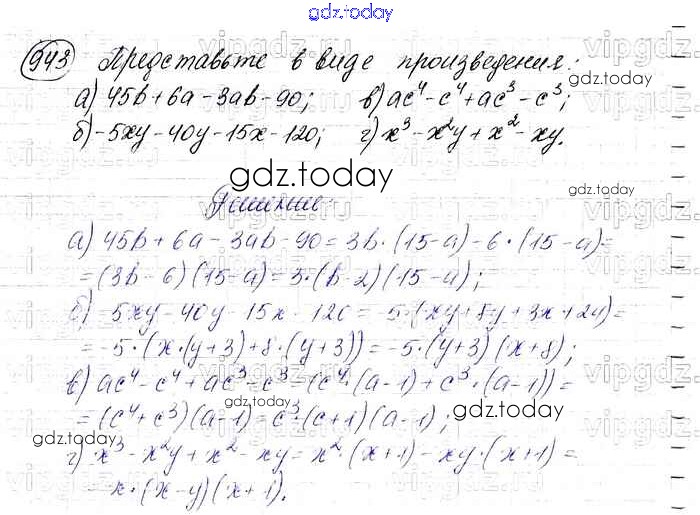 gdz.today
943 Представьте в виде произведения:
а) 45b + 6a - 3ab - 90; в) ac⁴ - c⁴ + ac³ - c³;
б) -5xy - 40y - 15x - 120; г) x³ - x²y + x² - xy.
gdz.today
gdz.today
Решение:
а) 45b + 6a - 3ab - 90 = 3b·(15-a) - 6·(15-a) =
= (3b - 6)(15-a) = 3·(b-2)(15-a);
gdz.today
gdz.today
б) -5xy - 40y - 15x - 120 = -5·(xy + 8y + 3x + 24) =
= -5·(x·(y+3) + 8·(y+3)) = -5·(y+3)(x+8);
в) ac⁴ - c⁴ + ac³ - c³ = (c⁴·(a-1) + c³·(a-1)) =
= (c⁴ + c³)(a-1) = c³·(c+1)(a-1);
gdz.today
gdz.today
gdz.today
г) x³ - x²y + x² - xy = x²·(x+1) - xy·(x+1) =
= x·(x-y)(x+1).